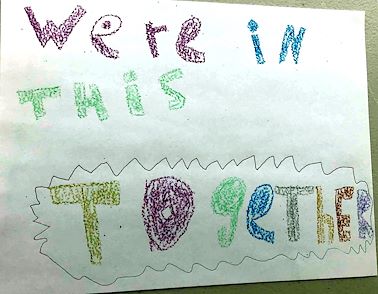 We're in
THiS
TOgeTHER